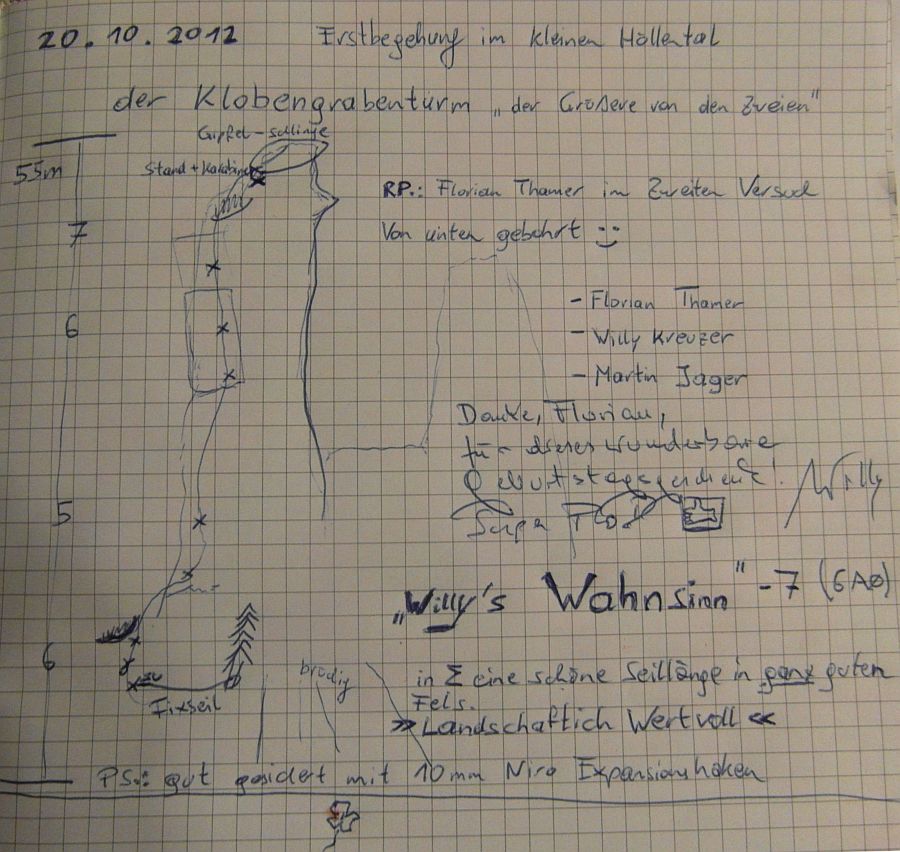 20.10.2012 Erstbegehung im kleinen Höllental
der Klobengrabenturm „der Größere von den Zweien"
Gipfel-schlinge
55m
Stand + Karabiner
RP.: Florian Thamer im Zweiten Versuch
7
Von unten gebohrt
- Florian Thamer
6
- Willy Kreuzer
- Martin Jager
Danke, Florian,
für dieses wunderbare
Geburtstagsgeschenk!
Willy
5
„Willy's Wahnsinn" -7 (6A0)
6
brüchig
in Σ eine schöne Seillänge in ganz guten
Fels.
Fixseil
» Landschaftlich Wertvoll «
PS.: gut gesichert mit 10mm Niro Expansionshaken